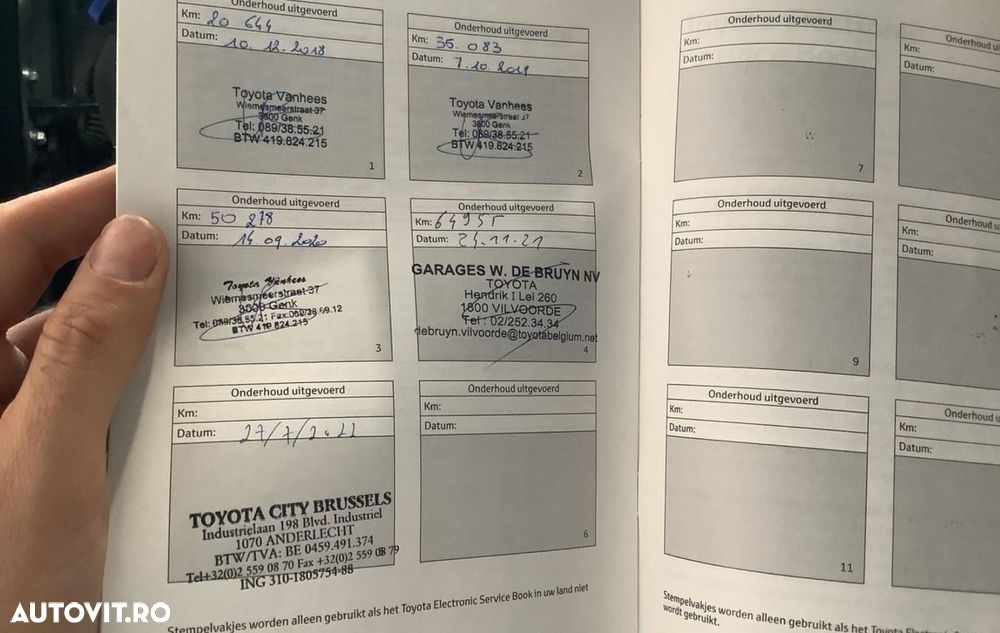 Onderhoud uitgevoerd
Km: 20 644
Datum: 10.12.2018
Toyota Vanhees
Wiemesmeerstraat 37
3600 Genk
Tel: 089/38.55.21
BTW 419.824.215
1
Onderhoud uitgevoerd
Km: 35.083
Datum: 7.10 2019
Toyota Vanhees
Wiemesmeerstraat 37
3600 Genk
Tel: 089/38.55.21
BTW 419.824.215
2
Onderhoud uitgevoerd
Km: 50 278
Datum: 14.09.2020
Toyota Vanhees
Wiemesmeerstraat 37
3600 Genk
Tel: 089/38.55.21 Fax:
BTW 419.824.215
3
Onderhoud uitgevoerd
Km: 64955
Datum: 11.21
GARAGES W. DE BRUYN NV
TOYOTA
Hendrik I Lei 260
1800 VILVOORDE
Tel : 02/252.34.34
debruyn.vilvoorde@toyotabelgium.net
4
Onderhoud uitgevoerd
Km:
Datum: 27/7/2022
TOYOTA CITY BRUSSELS
Industrielaan 198 Blvd. Industriel
1070 ANDERLECHT
BTW/TVA: BE 0459.491.374
Tel+32(0)2 559 08 70 Fax +32(0)2 559 08 79
ING 310-1805754-88
Onderhoud uitgevoerd
Km:
Datum:
6
Stempelvakjes worden alleen gebruikt als het Toyota Electronic Service Book in uw land niet
Onderhoud uitgevoerd
Km:
Datum:
7
Onderhoud u
Km:
Datum:
Onderhoud uitgevoerd
Km:
Datum:
9
Onderhoud u
Km:
Datum:
Onderhoud uitgevoerd
Km:
Datum:
11
Onderhoud
Km:
Datum:
Stempelvakjes worden alleen gebruikt als het Toyota
wordt gebruikt.
AUTOVIT.RO